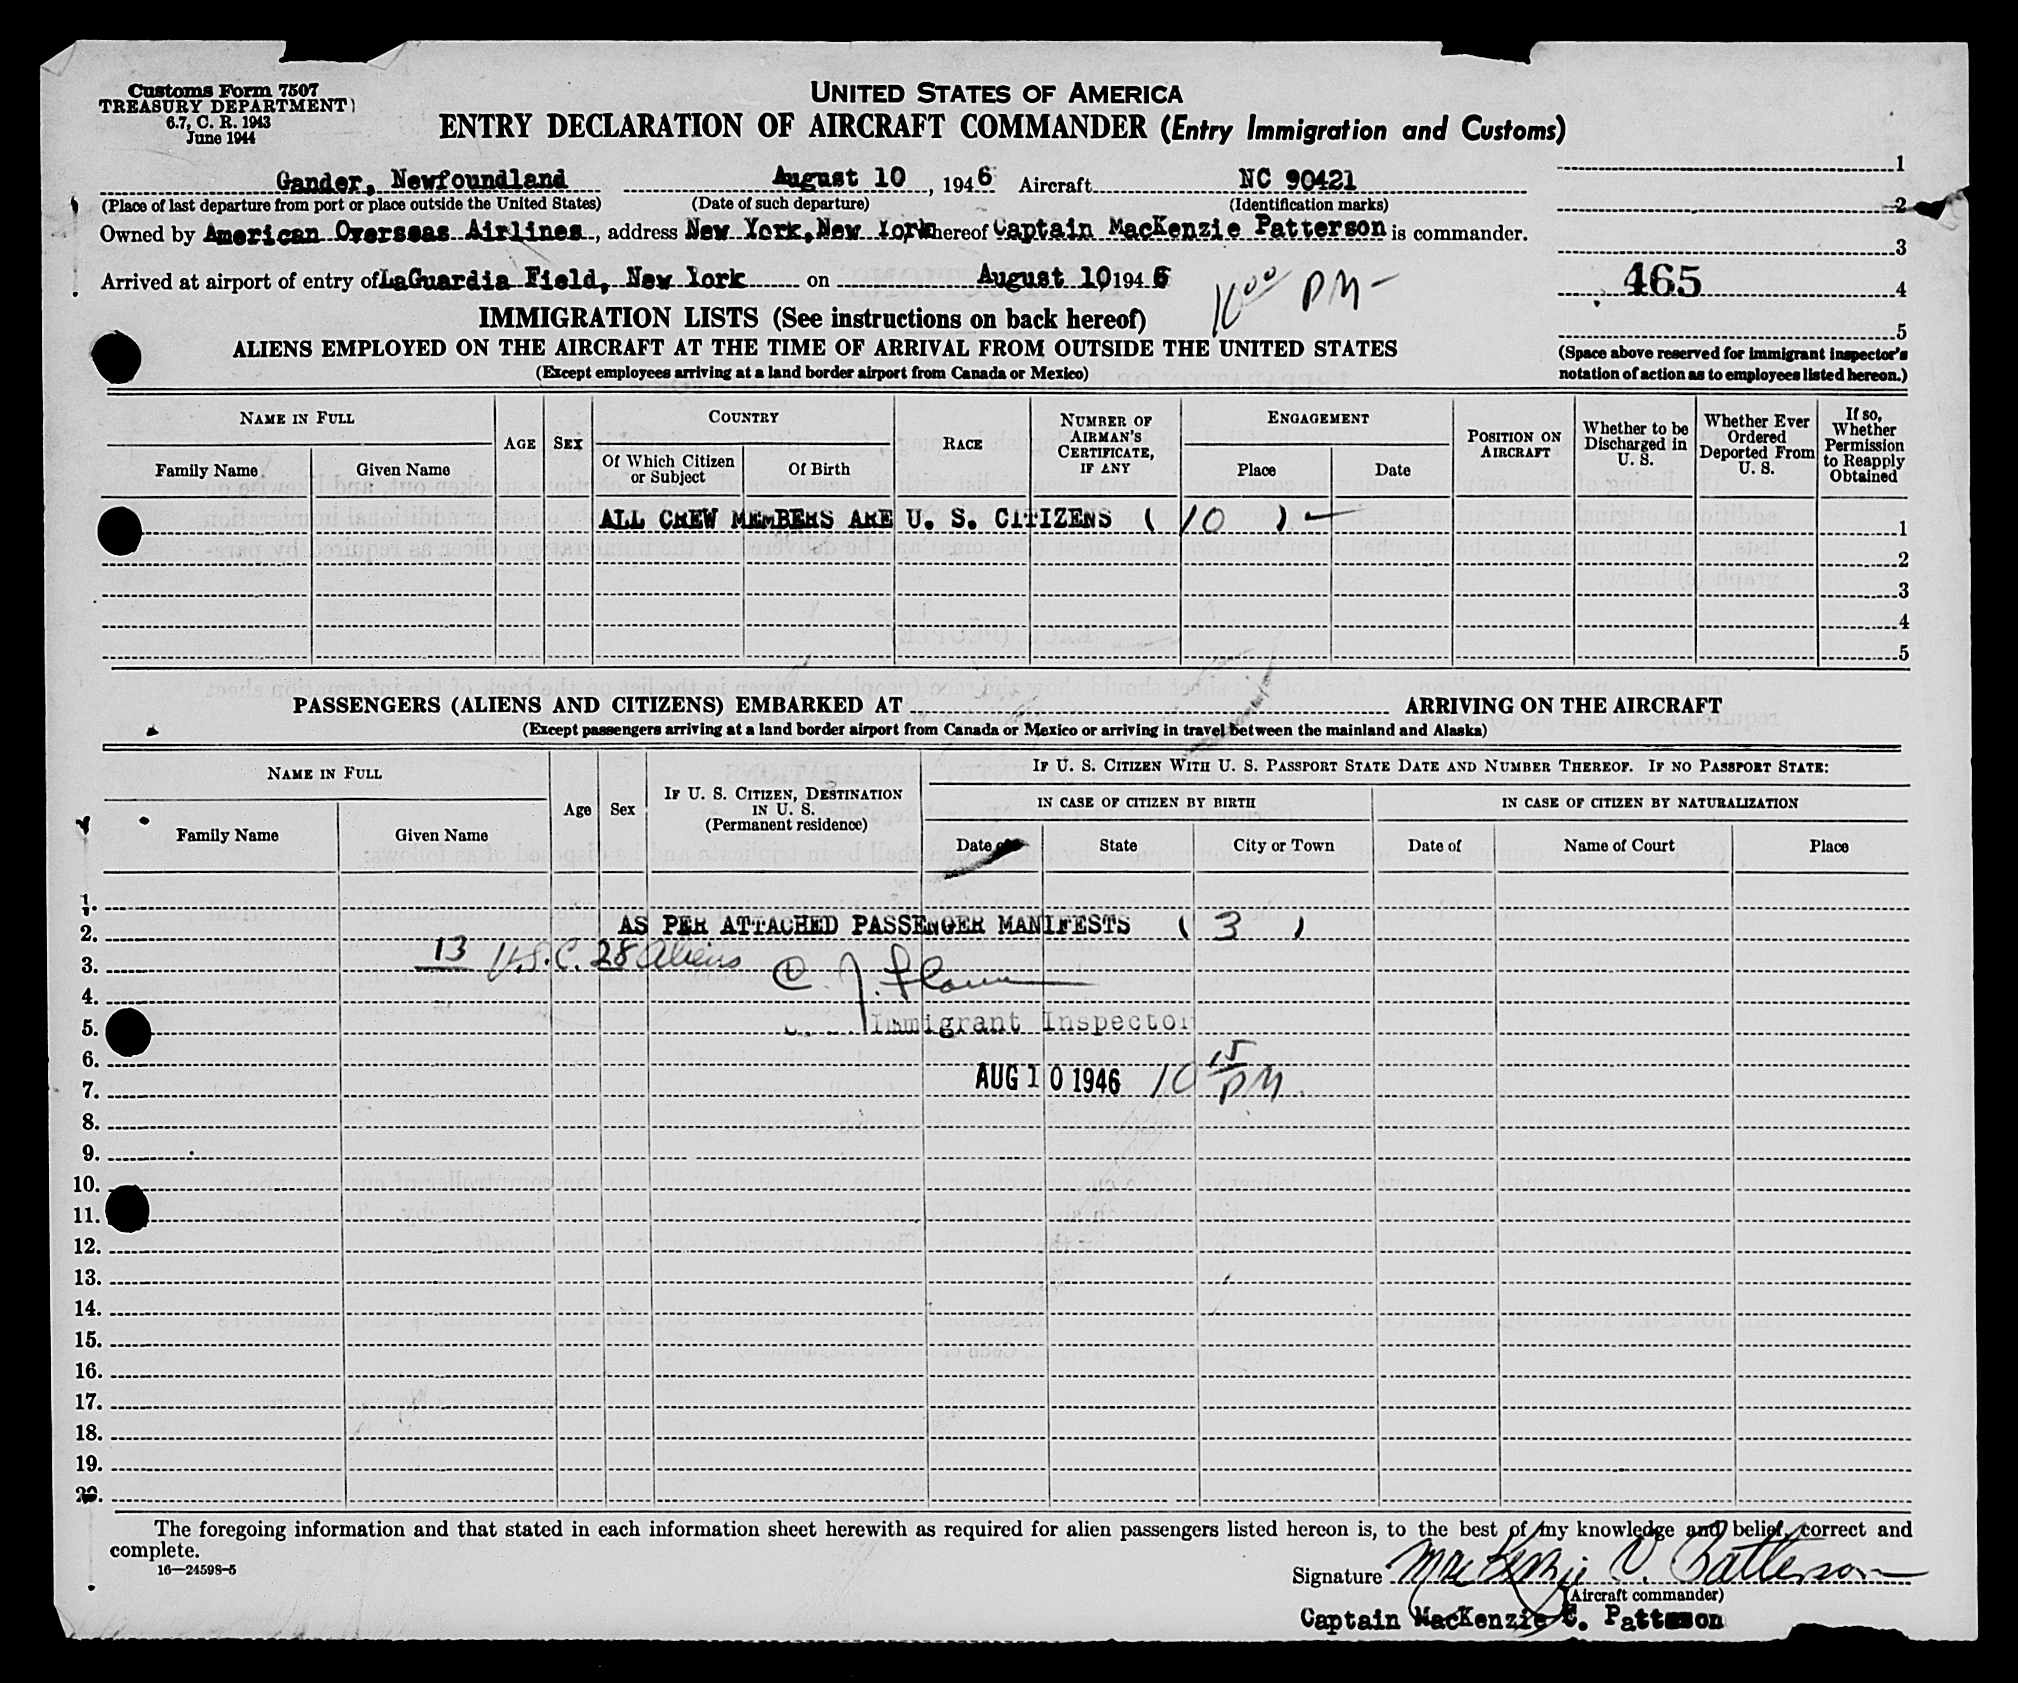 Customs Form 7507
TREASURY DEPARTMENT
6.7, C. R. 1943
June 1944
UNITED STATES OF AMERICA
ENTRY DECLARATION OF AIRCRAFT COMMANDER (Entry Immigration and Customs)
Gander, Newfoundland August 10, 1946 Aircraft NC 90421
(Place of last departure from port or place outside the United States) (Date of such departure) (Identification marks)
Owned by American Overseas Airlines, address New York, New York whereof Captain MacKenzie Patterson is commander.
Arrived at airport of entry of LaGuardia Field, New York on August 10 1946 10 00 PM -
1
2
3
465 4
5
(Space above reserved for immigrant inspector's
notation of action as to employees listed hereon.)
IMMIGRATION LISTS (See instructions on back hereof)
ALIENS EMPLOYED ON THE AIRCRAFT AT THE TIME OF ARRIVAL FROM OUTSIDE THE UNITED STATES
(Except employees arriving at a land border airport from Canada or Mexico)
NAME IN FULL
Family Name Given Name
AGE SEX
COUNTRY
Of Which Citizen or Subject Of Birth
RACE
NUMBER OF AIRMAN'S CERTIFICATE, IF ANY
ENGAGEMENT
Place Date
POSITION ON AIRCRAFT
Whether to be Discharged in U. S.
Whether Ever Ordered Deported From U. S.
If so, Whether Permission to Reapply Obtained
ALL CREW MEMBERS ARE U. S. CITIZENS ( 10 ) 1
2
3
4
5
PASSENGERS (ALIENS AND CITIZENS) EMBARKED AT ARRIVING ON THE AIRCRAFT
(Except passengers arriving at a land border airport from Canada or Mexico or arriving in travel between the mainland and Alaska)
NAME IN FULL
Family Name Given Name
Age Sex
IF U. S. CITIZEN, DESTINATION IN U. S. (Permanent residence)
IF U. S. CITIZEN WITH U. S. PASSPORT STATE DATE AND NUMBER THEREOF. IF NO PASSPORT STATE:
IN CASE OF CITIZEN BY BIRTH IN CASE OF CITIZEN BY NATURALIZATION
Date of State City or Town Date of Name of Court Place
1.
2. AS PER ATTACHED PASSENGER MANIFESTS ( 3 )
3. 13 U.S.C. 28 Aliens
4.
5. Immigrant Inspector
6.
7. AUG 10 1946 10 15 PM.
8.
9.
10.
11.
12.
13.
14.
15.
16.
17.
18.
19.
20.
The foregoing information and that stated in each information sheet herewith as required for alien passengers listed hereon is, to the best of my knowledge and belief, correct and
complete.
16—24598-5
Signature MacKenzie C. Patterson
(Aircraft commander)
Captain MacKenzie C. Patterson